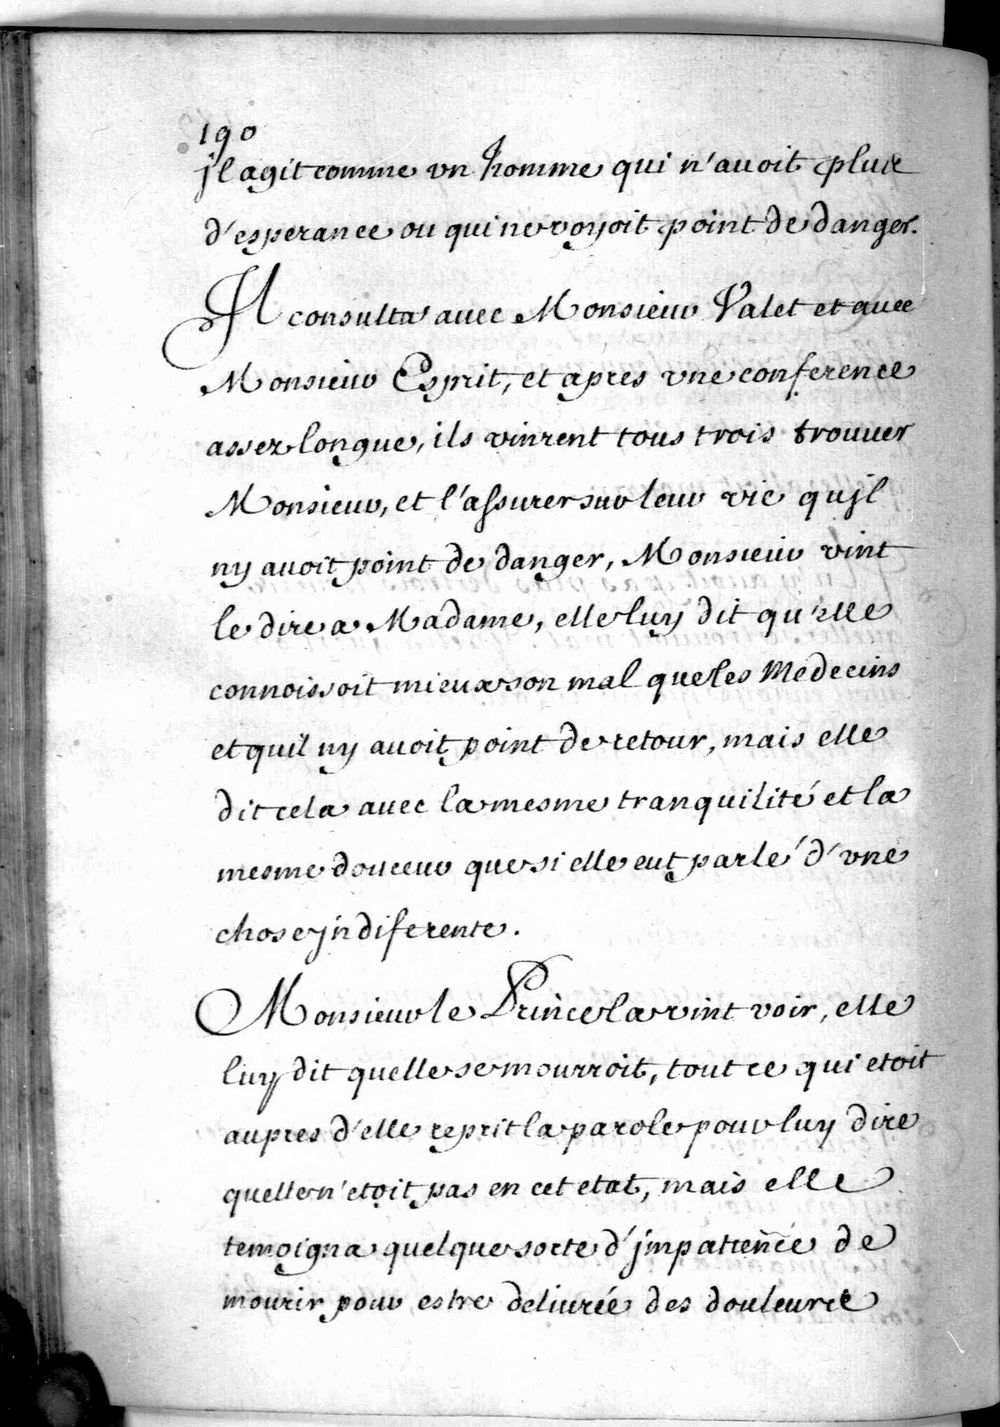 190
jl agit comme vn homme qui n'avoit plus
d'esperance ou qui ne voyoit point de danger.
Il consulta avec Monsieur Valet et avec
Monsieur Esprit, et apres vne conference
assez longue, ils vinrent tous trois trouver
Monsieur, et l'assurer sur leur vie qujl
ny avoit point de danger, Monsieur vint
le dire a Madame, elle luy dit qu'elle
connoissoit mieux son mal que les Medecins
et quil ny avoit point de retour, mais elle
dit cela avec la mesme tranquilité et la
mesme douceur que si elle eut parlé d'vne
chose jndiferente.
Monsieur le Prince la vint voir, elle
luy dit quelle se mourroit, tout ce qui etoit
aupres d'elle reprit la parole pour luy dire
quelle n'etoit pas en cet etat, mais elle
temoigna quelque sorte d'jmpatience de
mourir pour estre deliurée des douleurs